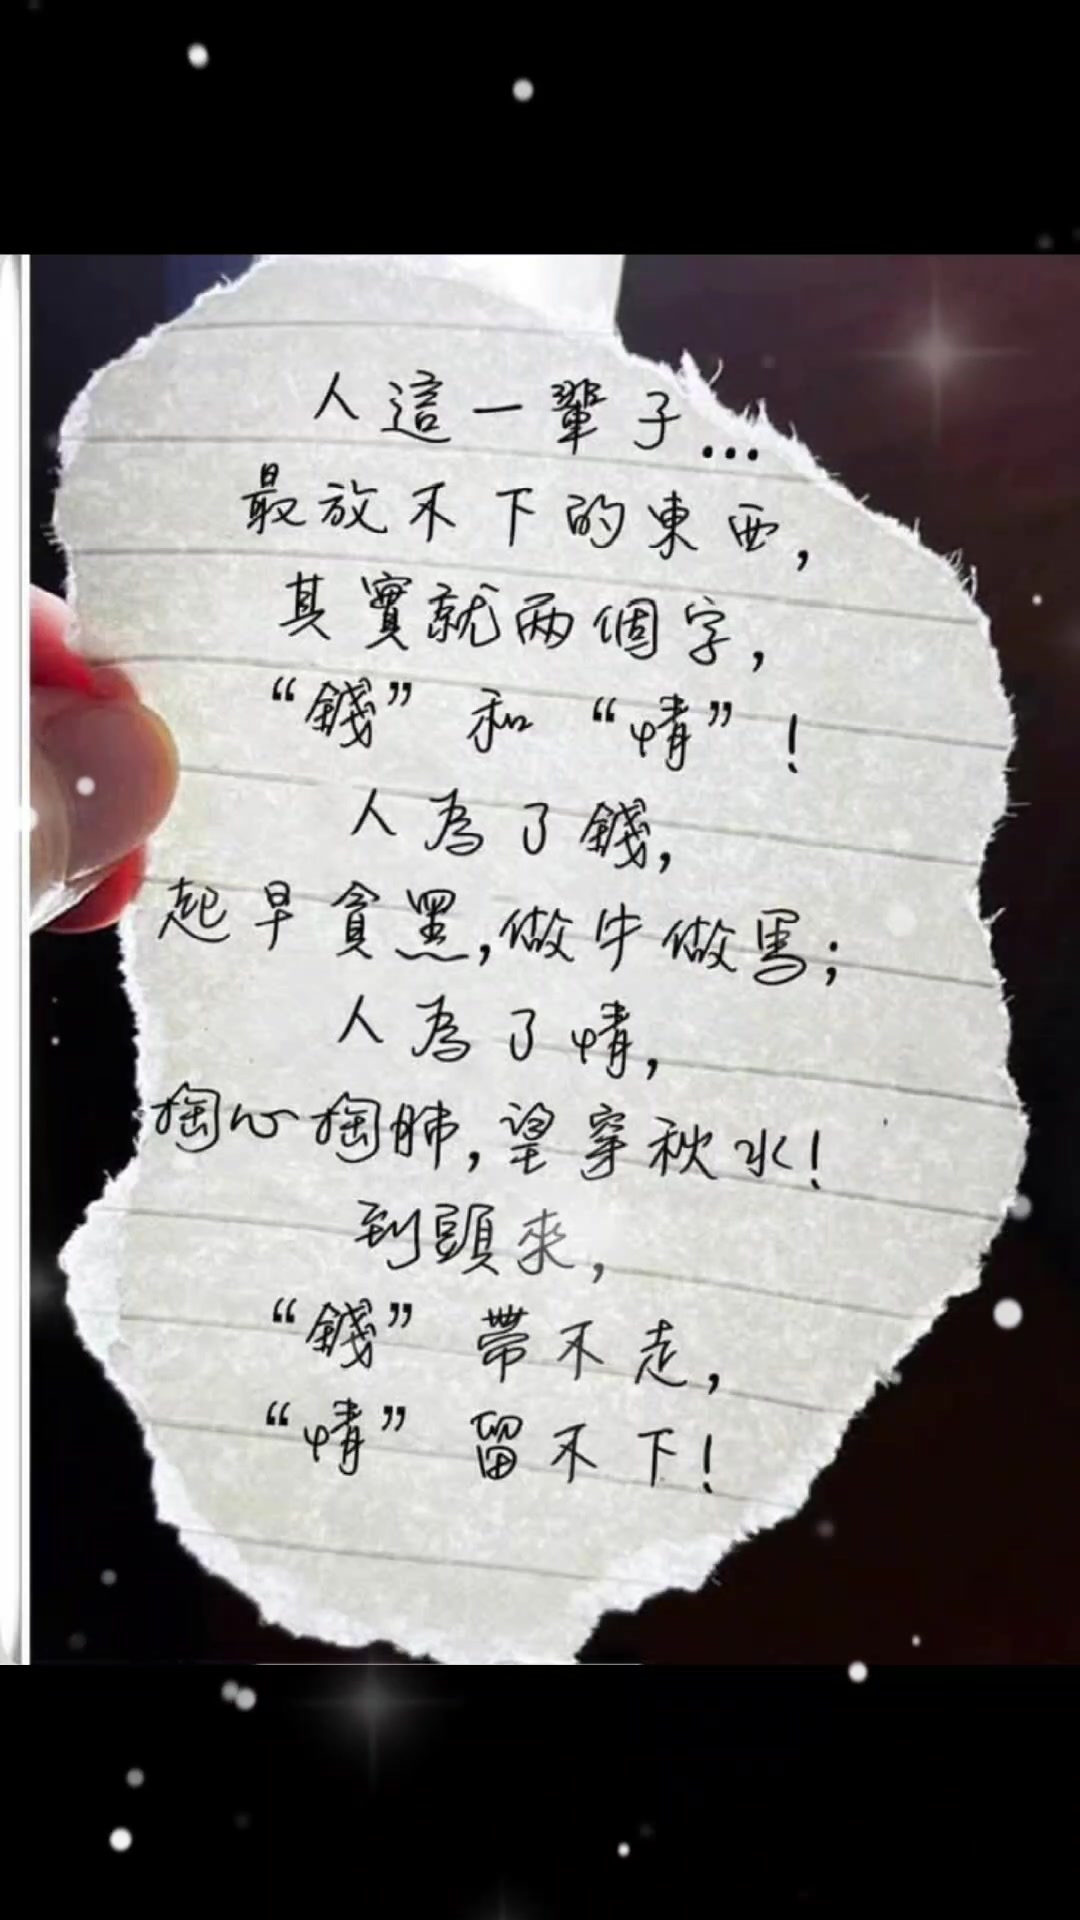 人這一輩子...
最放不下的東西,
其實就兩個字,
“錢” 和 “情” !
人為了錢,
起早貪黑,做牛做馬;
人為了情,
掏心掏肺,望穿秋水!
到頭來,
“錢” 帶不走,
“情” 留不下!